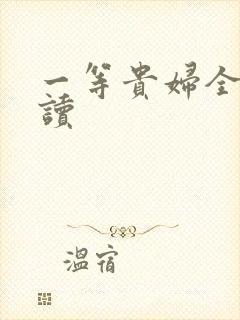 一等貴婦全
讀
溫宿